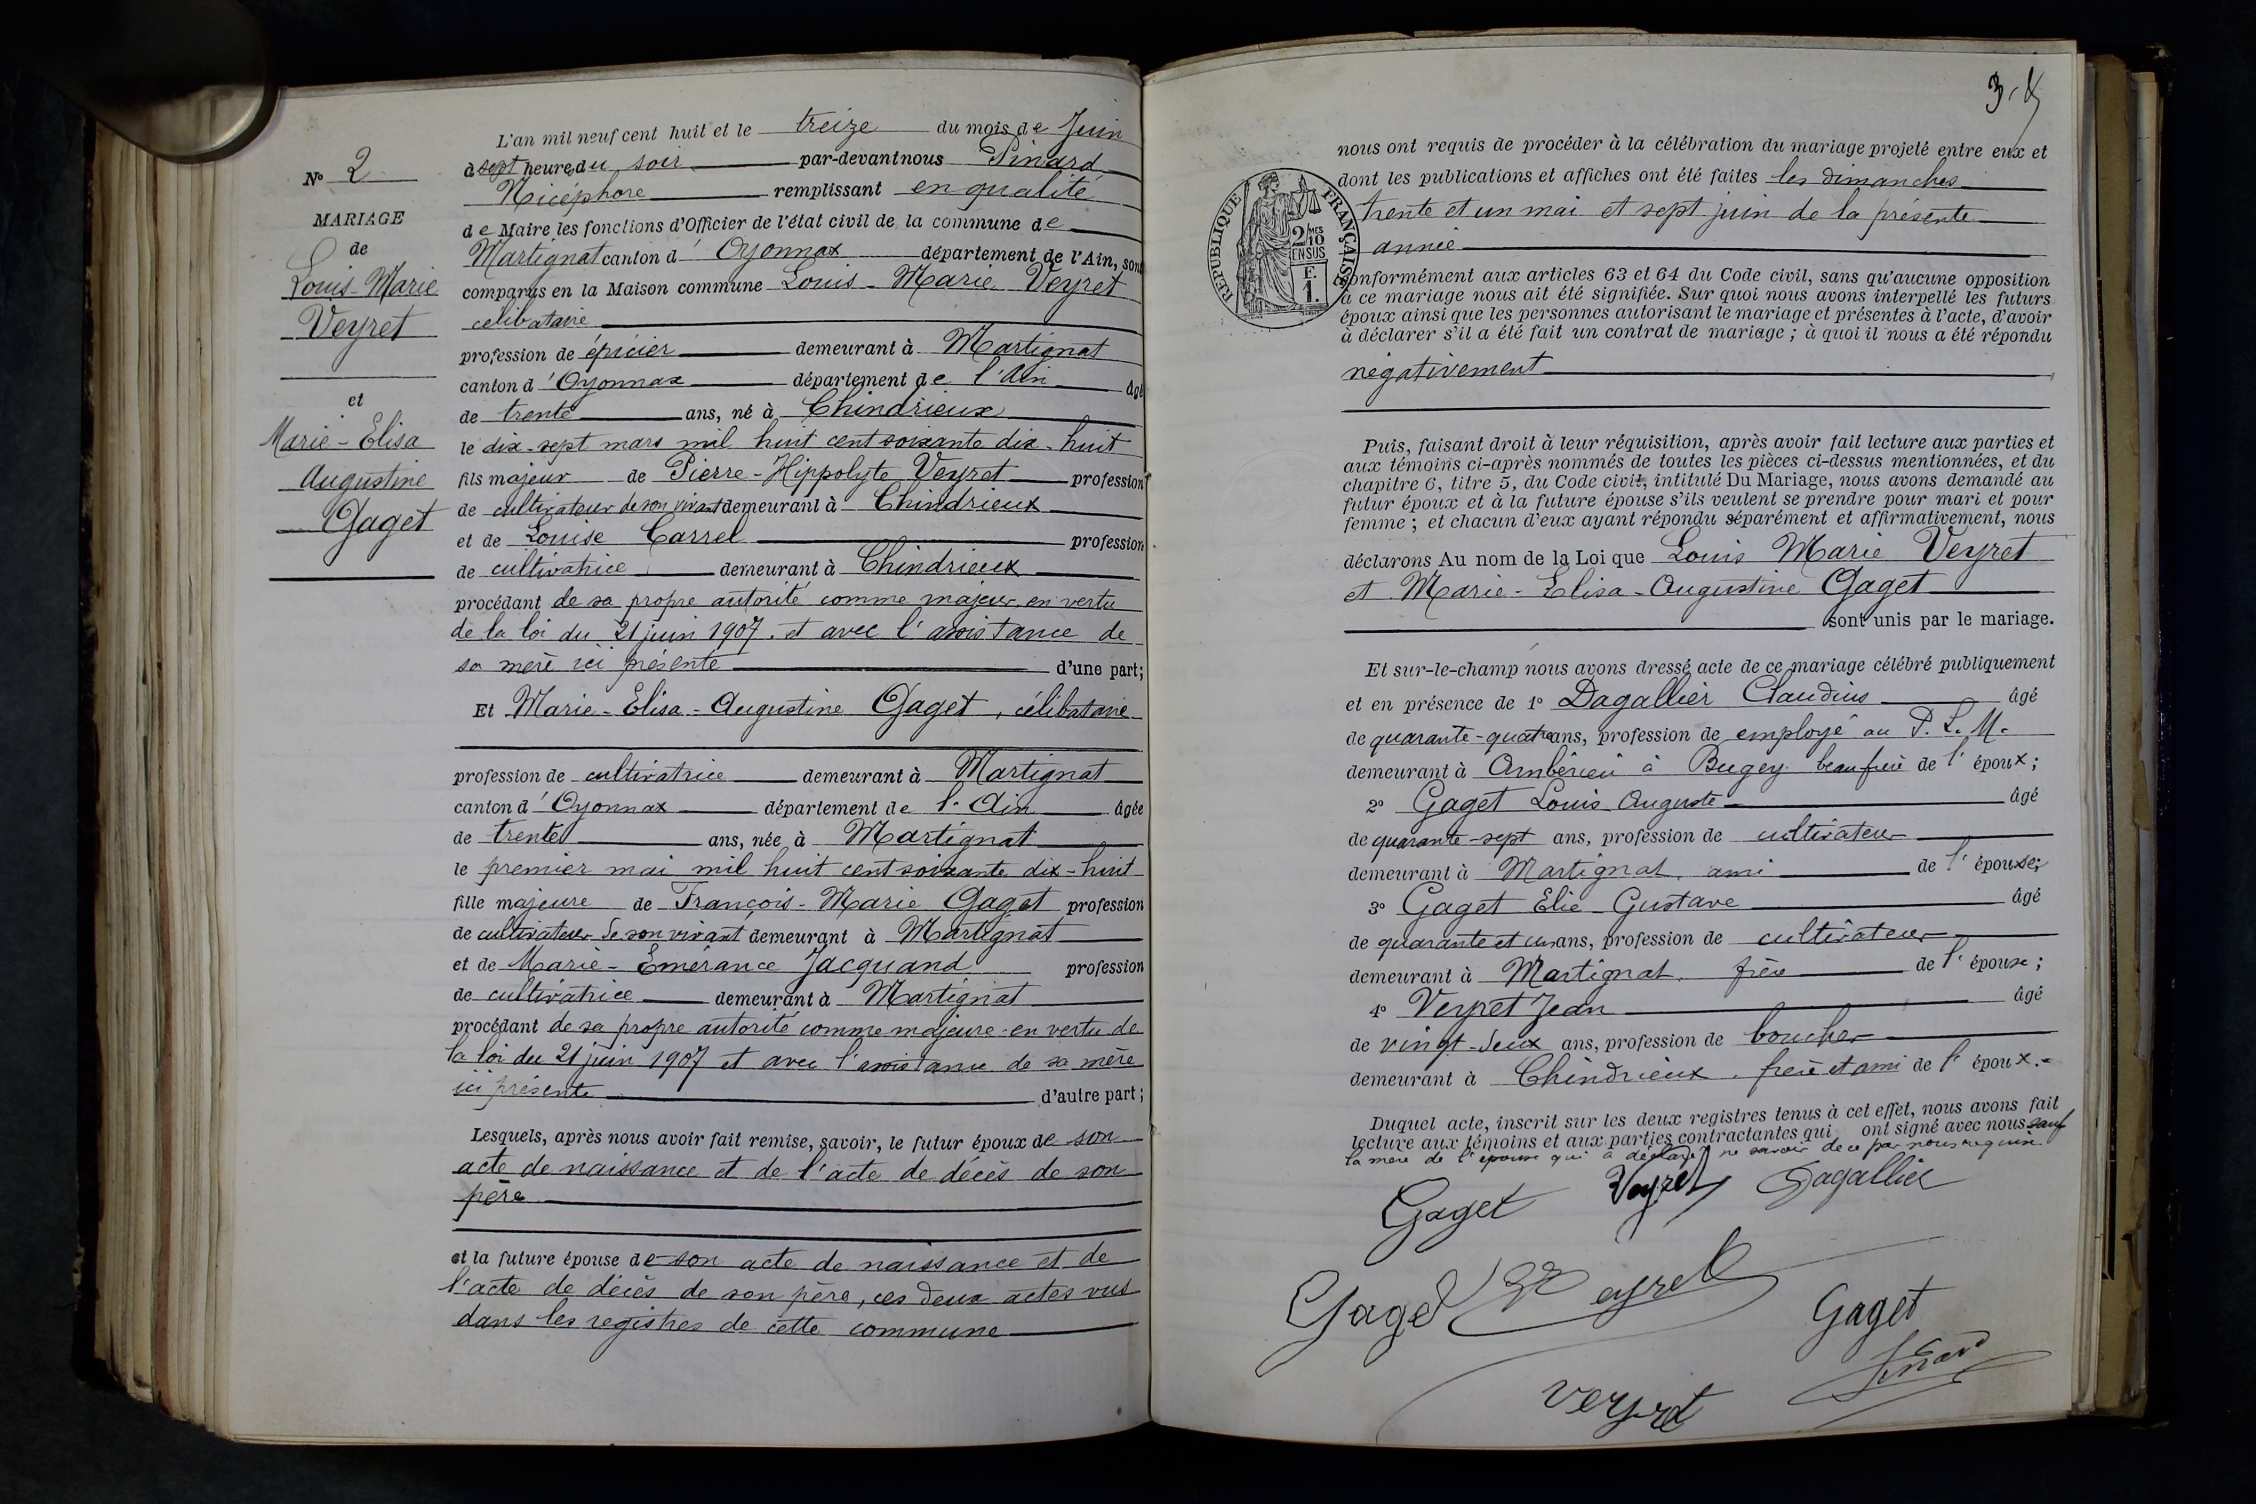 L'an mil neuf cent huit et le treize du mois de Juin
à sept heures du soir par-devant nous Pinard
Nicéphore remplissant en qualité
de Maire les fonctions d'Officier de l'état civil de la commune de
Martignat canton d'Oyonnax département de l'Ain, sont
comparus en la Maison commune Louis-Marie Veyret
célibataire
profession de épicier demeurant à Martignat
canton d'Oyonnax département de l'Ain âgé
de trente ans, né à Chindrieux
le dix-sept mars mil huit cent soixante dix-huit
fils majeur de Pierre-Hippolyte Veyret profession
de cultivateur de son vivant demeurant à Chindrieux
et de Louise Carrel profession
de cultivatrice demeurant à Chindrieux
procédant de sa propre autorité comme majeur, en vertu
de la loi du 21 juin 1907. et avec l'assistance de
sa mère ici présente d'une part;
Et Marie-Elisa-Augustine Gaget, célibataire
profession de cultivatrice demeurant à Martignat
canton d'Oyonnax département de l'Ain âgée
de trente ans, née à Martignat
le premier mai mil huit cent soixante dix-huit
fille majeure de François-Marie Gaget profession
de cultivateur de son vivant demeurant à Martignat
et de Marie-Emérance Jacquand profession
de cultivatrice demeurant à Martignat
procédant de sa propre autorité comme majeure en vertu de
la loi du 21 juin 1907 et avec l'assistance de sa mère
ici présente d'autre part;
Lesquels, après nous avoir fait remise, savoir, le futur époux de son
acte de naissance et de l'acte de décès de son
père
et la future épouse de son acte de naissance et de
l'acte de décès de son père, ces deux actes vus
dans les registres de cette commune
N° 2
MARIAGE
de
Louis-Marie
Veyret
et
Marie-Elisa
Augustine
Gaget
nous ont requis de procéder à la célébration du mariage projeté entre eux et
dont les publications et affiches ont été faites les dimanches
trente et un mai et sept juin de la présente
année
conformément aux articles 63 et 64 du Code civil, sans qu'aucune opposition
à ce mariage nous ait été signifiée. Sur quoi nous avons interpellé les futurs
époux ainsi que les personnes autorisant le mariage et présentes à l'acte, d'avoir
à déclarer s'il a été fait un contrat de mariage; à quoi il nous a été répondu
négativement
Puis, faisant droit à leur réquisition, après avoir fait lecture aux parties et
aux témoins ci-après nommés de toutes les pièces ci-dessus mentionnées, et du
chapitre 6, titre 5, du Code civil, intitulé Du Mariage, nous avons demandé au
futur époux et à la future épouse s'ils veulent se prendre pour mari et pour
femme; et chacun d'eux ayant répondu séparément et affirmativement, nous
déclarons Au nom de la Loi que Louis Marie Veyret
et Marie-Elisa-Augustine Gaget
sont unis par le mariage.
Et sur-le-champ nous avons dressé acte de ce mariage célébré publiquement
et en présence de 1° Dagallier Claudius âgé
de quarante-quatre ans, profession de employé au P. L. M.
demeurant à Ambérieu à Bugey beau frère de l'époux;
2° Gaget Louis Auguste âgé
de quarante-sept ans, profession de cultivateur
demeurant à Martignat, ami de l'épouse;
3° Gaget Elie-Gustave âgé
de quarante et un ans, profession de cultivateur
demeurant à Martignat, frère de l'épouse;
4° Veyret Jean âgé
de vingt-deux ans, profession de boucher
demeurant à Chindrieux, frère et ami de l'époux.
Duquel acte, inscrit sur les deux registres tenus à cet effet, nous avons fait
lecture aux témoins et aux parties contractantes qui ont signé avec nous sauf
la mère de l'épouse qui a déclaré ne savoir de ce par nous requise.
Gaget Veyret Dagallier
Gaget Veyret Gaget
Pinard
Veyret
RÉPUBLIQUE FRANÇAISE
2/10 MES
EN SUS
F.
1.